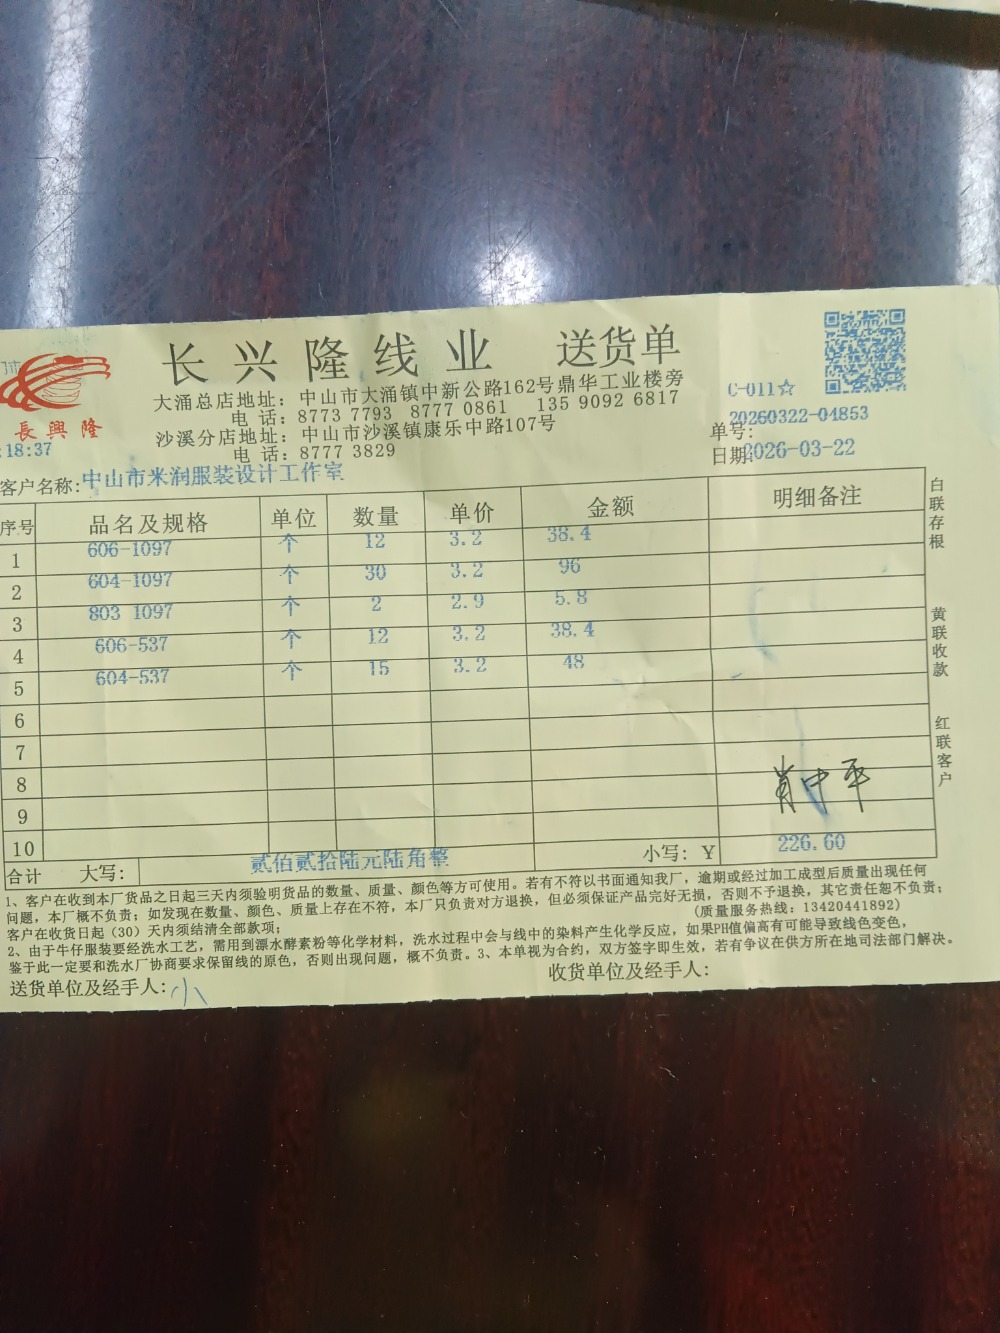 长兴隆线业 送货单
長興隆
大涌总店地址：中山市大涌镇中新公路162号鼎华工业楼旁
电 话：8773 7793 8777 0861 135 9092 6817
沙溪分店地址：中山市沙溪镇康乐中路107号
电 话：8777 3829
C-011☆
单号：20260322-04853
日期：2026-03-22
:18:37
客户名称:中山市米润服装设计工作室
序号 品名及规格 单位 数量 单价 金额 明细备注
1 606-1097 个 12 3.2 38.4
2 604-1097 个 30 3.2 96
3 803 1097 个 2 2.9 5.8
4 606-537 个 12 3.2 38.4
5 604-537 个 15 3.2 48
6
7
8
9
10
肖中平
合计 大写: 贰佰贰拾陆元陆角整 小写: Y 226.60
白联存根
黄联收款
红联客户
1、客户在收到本厂货品之日起三天内须验明货品的数量、质量、颜色等方可使用。若有不符以书面通知我厂，逾期或经过加工成型后质量出现任何
问题，本厂概不负责；如发现在数量、颜色、质量上存在不符，本厂只负责对方退换，但必须保证产品完好无损，否则不予退换，其它责任恕不负责；
客户在收货日起（30）天内须结清全部款项； (质量服务热线：13420441892)
2、由于牛仔服装要经洗水工艺，需用到漂水酵素粉等化学材料，洗水过程中会与线中的染料产生化学反应，如果PH值偏高有可能导致线色变色，
鉴于此一定要和洗水厂协商要求保留线的原色，否则出现问题，概不负责。3、本单视为合约，双方签字即生效，若有争议在供方所在地司法部门解决。
送货单位及经手人:小 收货单位及经手人: